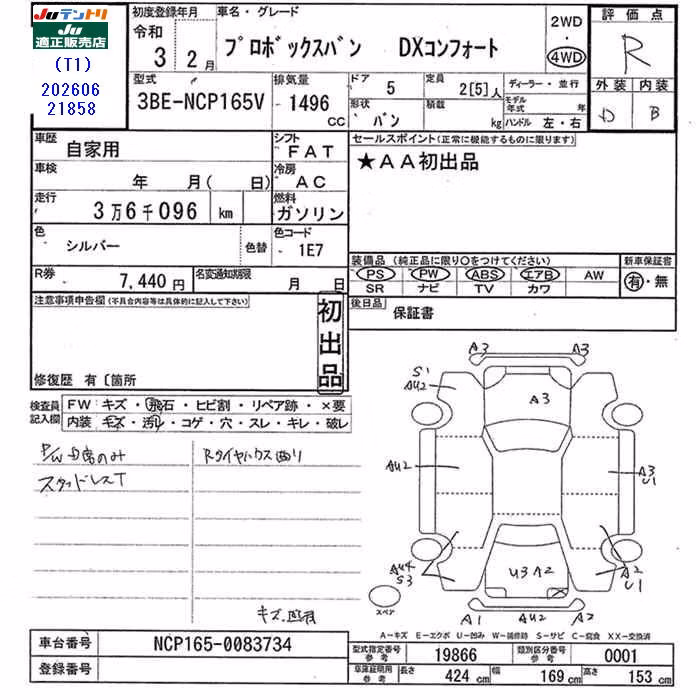 JUテントリ
JU
適正販売店
(T1)
202606
21858
初度登録年月
令和
3 2月
車名・グレード
プロボックスバン DXコンフォート
2WD
・
4WD
評価点
R
外装 内装
D B
型式
3BE-NCP165V
排気量
1496
CC
ドア
5
定員
2[5]人
形状
バン
積載
kg
ディーラー・並行
モデル年式 年
ハンドル 左・右
車歴
自家用
シフト
FAT
セールスポイント(正常に機能するものに限ります)
★AA初出品
車検
年 月( 日)
冷房
AC
走行
3万6千096 km
燃料
ガソリン
色
シルバー
色替
色コード
1E7
装備品(純正品に限り○をつけてください)
新車保証書
PS PW ABS エアB AW
SR ナビ TV カワ
有・無
R券
7,440円
名変通知期限
月 日
後日品
保証書
注意事項申告欄(不具合内容等は具体的に記入して下さい)
初出品
修復歴 有〔箇所
検査員記入欄
FW キズ・飛石・ヒビ割・リペア跡・×要
内装 キズ・汚レ・コゲ・穴・スレ・キレ・破レ
P/W 力席のみ
スタッドレスT
Rタイヤハウス凹り
A3 A3
S1
AU2
A3
AU2
A3
U1
AU4
S3
U3 A2
A2
U1
スペア
A1 AU2 A2
キズ、凹有
A-キズ E-エクボ U-凹み W-補修跡 S-サビ C-腐食 XX-交換済
車台番号 NCP165-0083734
登録番号
型式指定番号
参考
19866
類別区分番号
参考
0001
車庫証明用
参考
長さ 424 cm 幅 169 cm 高さ 153 cm